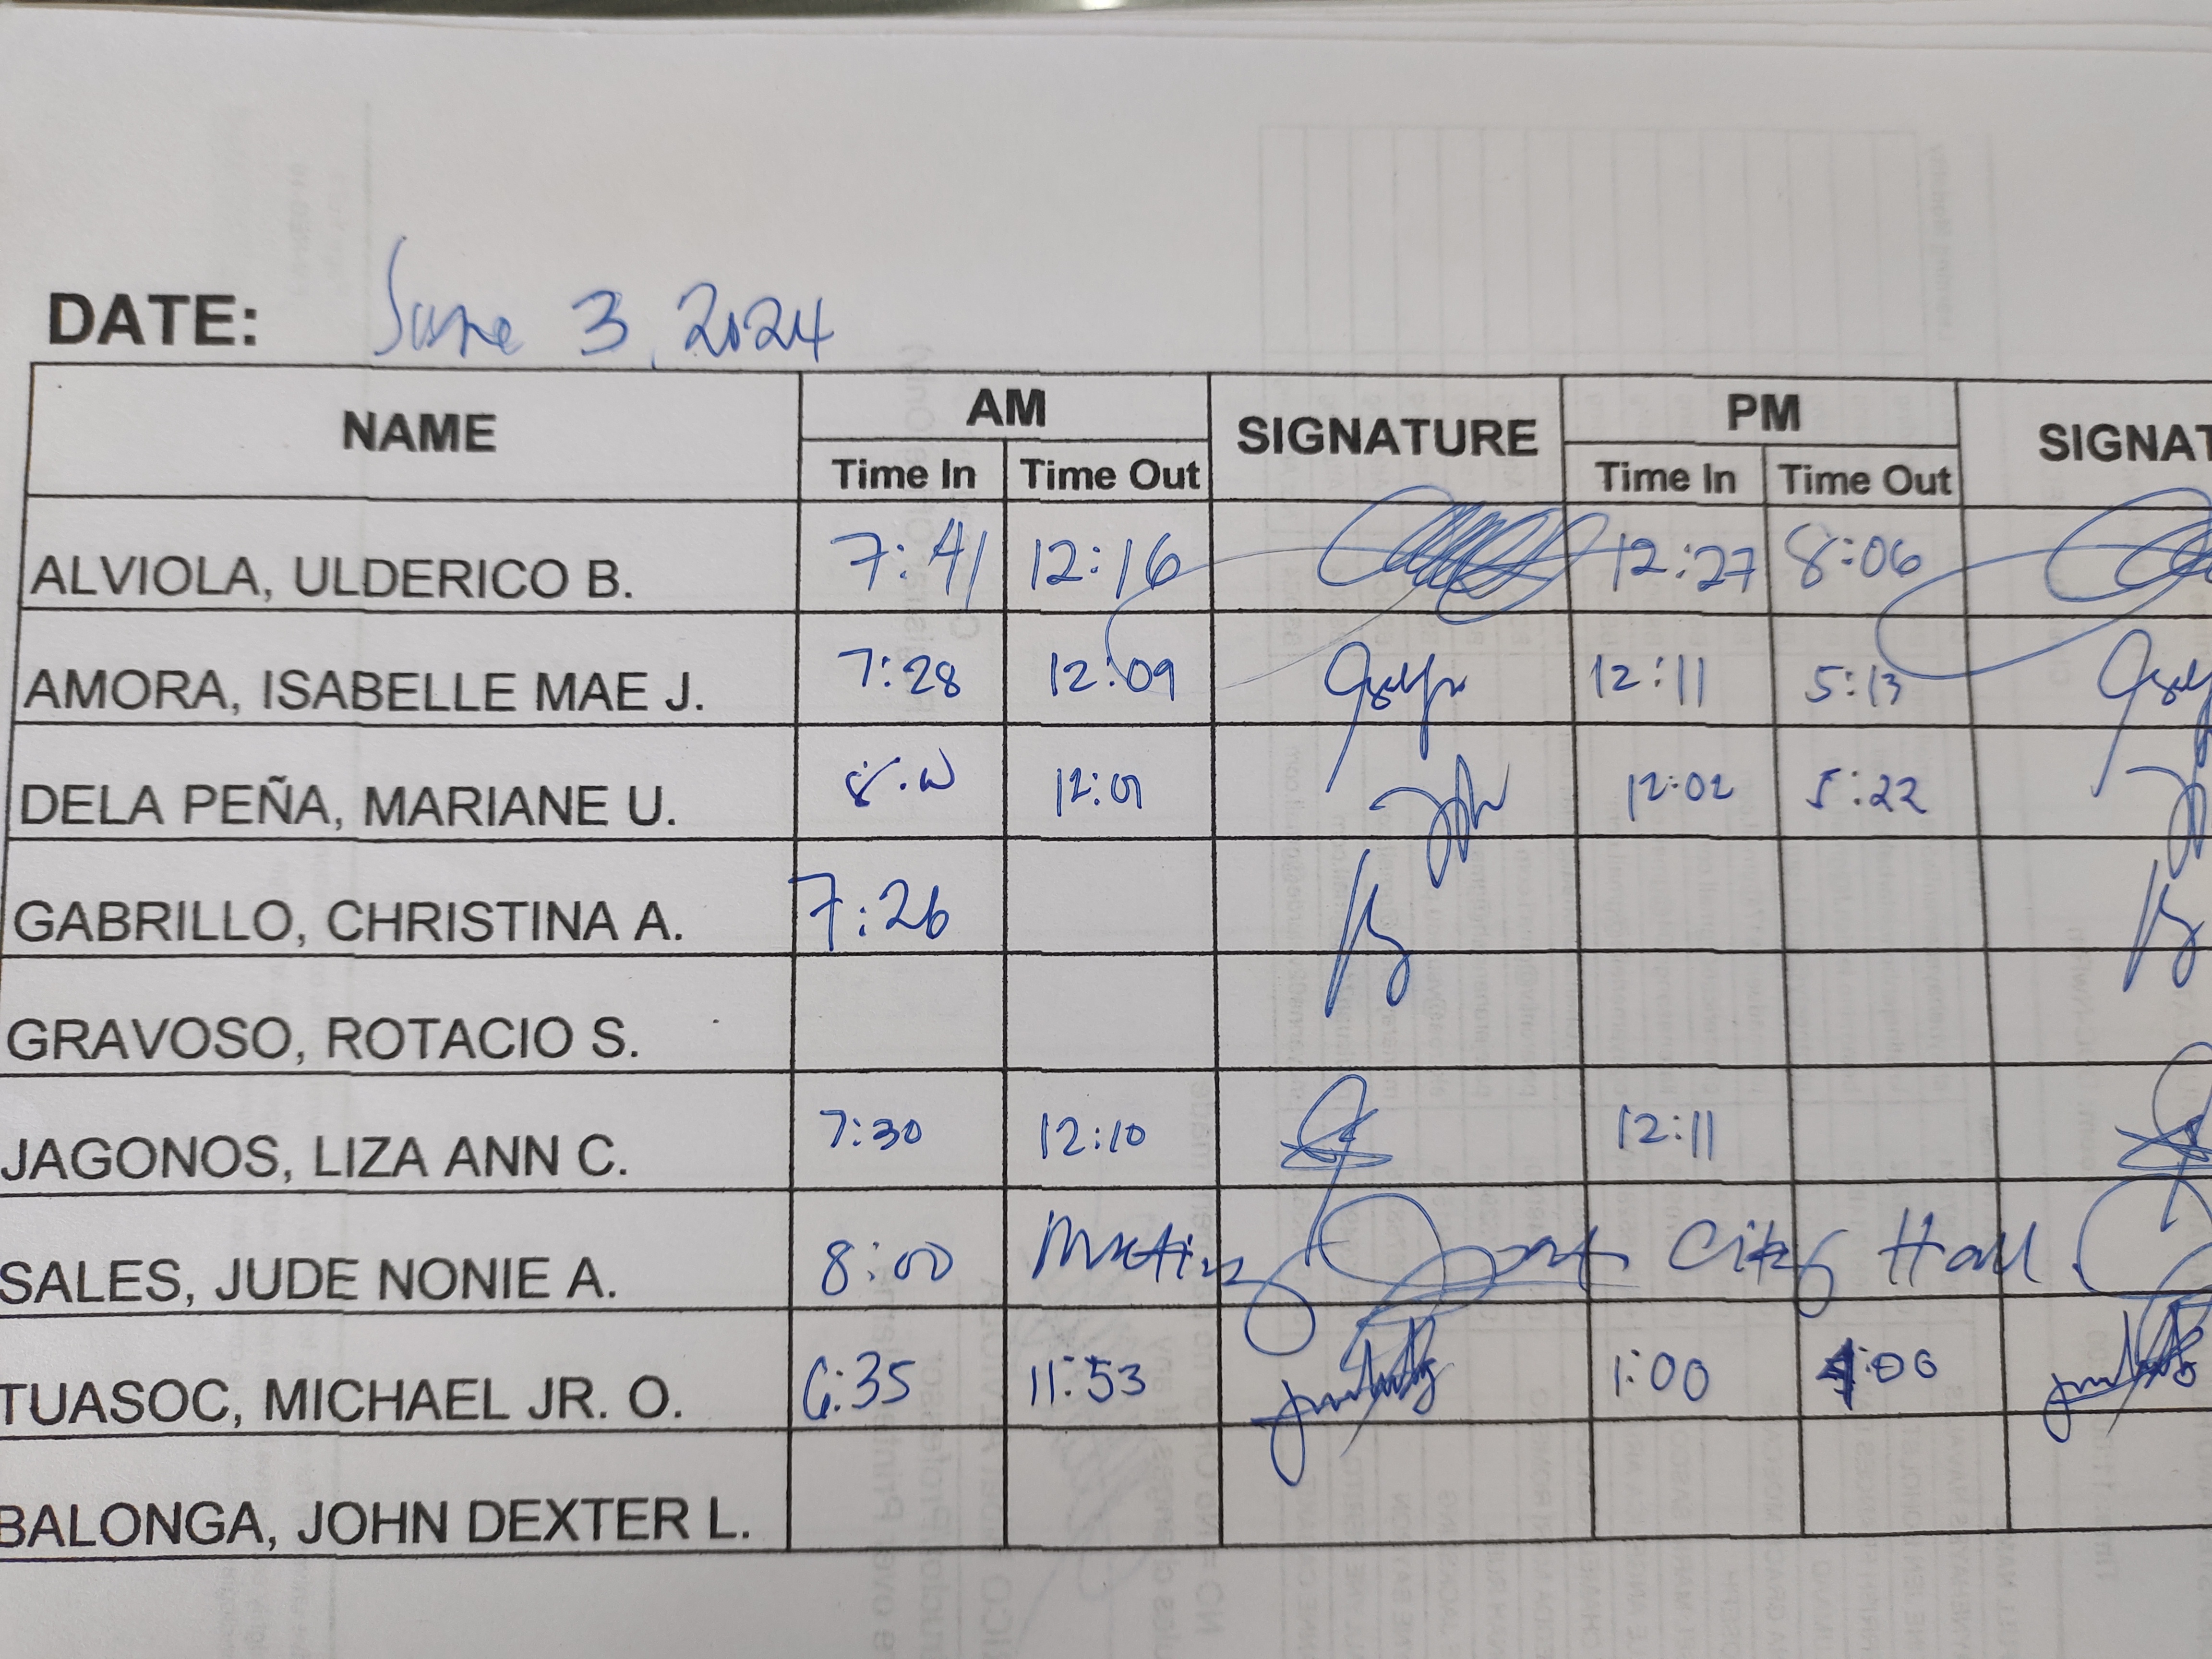 DATE: June 3, 2024
NAME AM SIGNATURE PM SIGNAT
Time In Time Out Time In Time Out
ALVIOLA, ULDERICO B. 7:41 12:16 12:27 8:06
AMORA, ISABELLE MAE J. 7:28 12:09 12:11 5:13
DELA PEÑA, MARIANE U. 8:00 12:01 12:02 5:22
GABRILLO, CHRISTINA A. 7:26
GRAVOSO, ROTACIO S.
JAGONOS, LIZA ANN C. 7:30 12:10 12:11
SALES, JUDE NONIE A. 8:00 Meeting at City Hall
TUASOC, MICHAEL JR. O. 6:35 11:53 1:00 :00
BALONGA, JOHN DEXTER L.